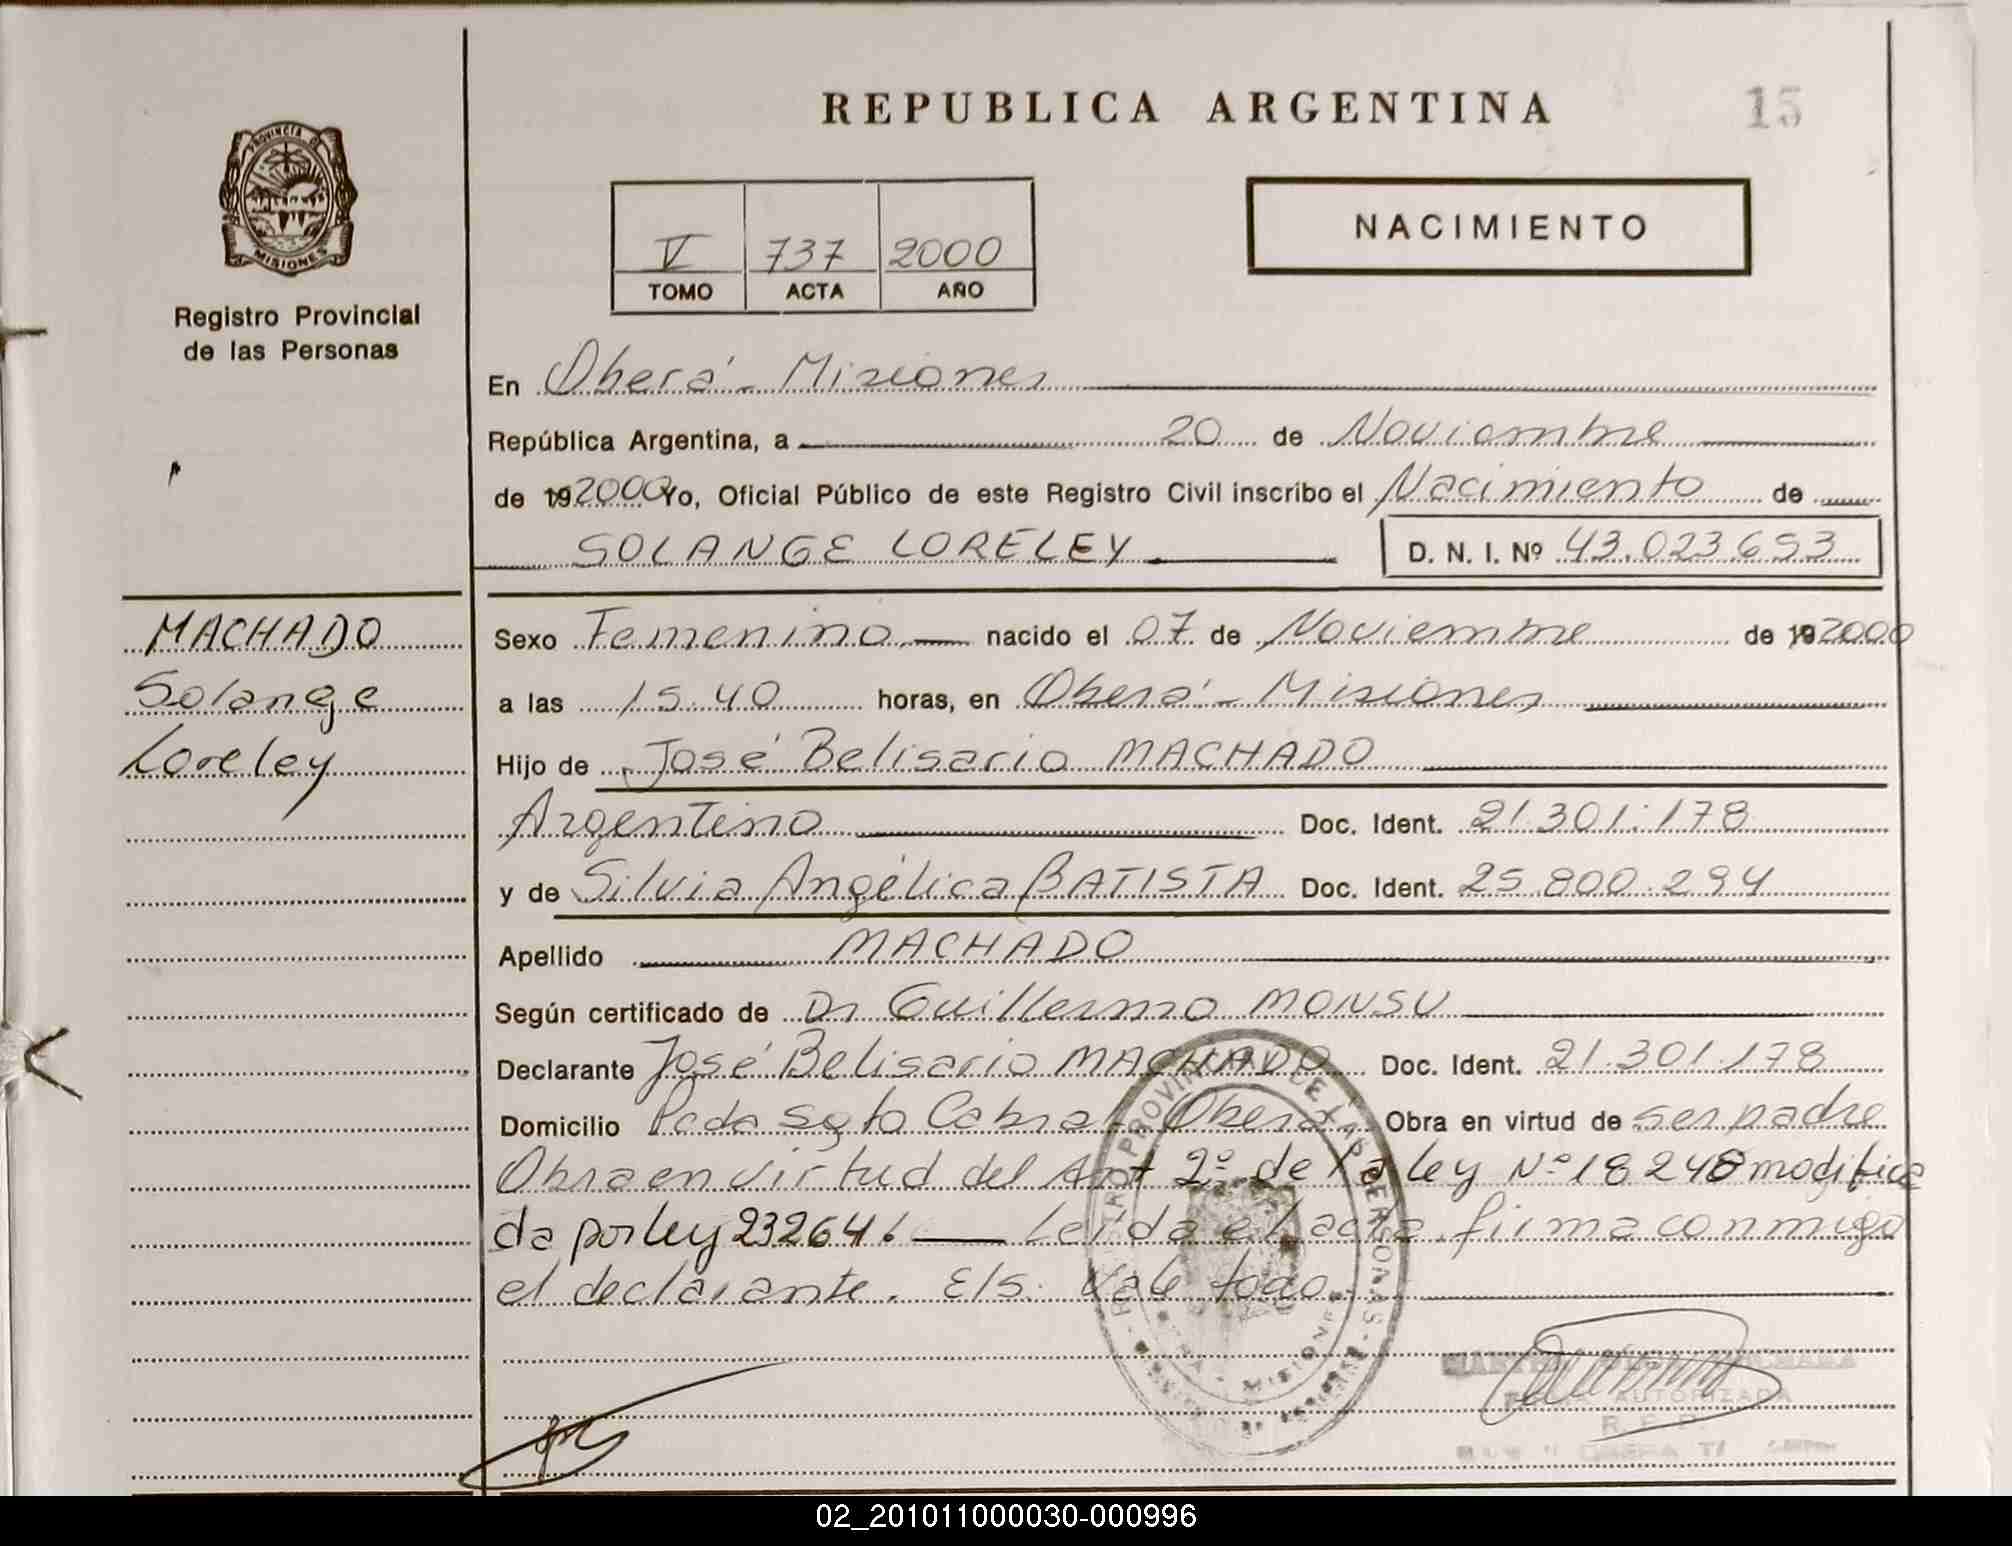 REPUBLICA ARGENTINA
15
PROVINCIA DE
MISIONES
Registro Provincial
de las Personas
V 737 2000
TOMO ACTA AÑO
NACIMIENTO
En Oberá - Misiones
República Argentina, a 20 de Noviembre
de 19 2000 Yo, Oficial Público de este Registro Civil inscribo el Nacimiento de
SOLANGE LORELEY D. N. I. Nº 43.023.653
MACHADO
Solange
Loreley
Sexo Femenino nacido el 07 de Noviembre de 19 2000
a las 15.40 horas, en Oberá - Misiones
Hijo de José Belisario MACHADO
Argentino Doc. Ident. 21.301.178
y de Silvia Angélica BATISTA Doc. Ident. 25.800.294
Apellido MACHADO
Según certificado de Dr Guillermo MONSU
Declarante José Belisario MACHADO Doc. Ident. 21.301.178
Domicilio Pcda Sgto Cabral Oberá Obra en virtud de ser padre
Obra en virtud del Art 2º de la ley Nº 18248 modifica
da por ley 23264. Leída el acta, firma conmigo
el declarante. E/s: Vale todo.
AUTORIZADA
R. P. P.
02_201011000030-000996